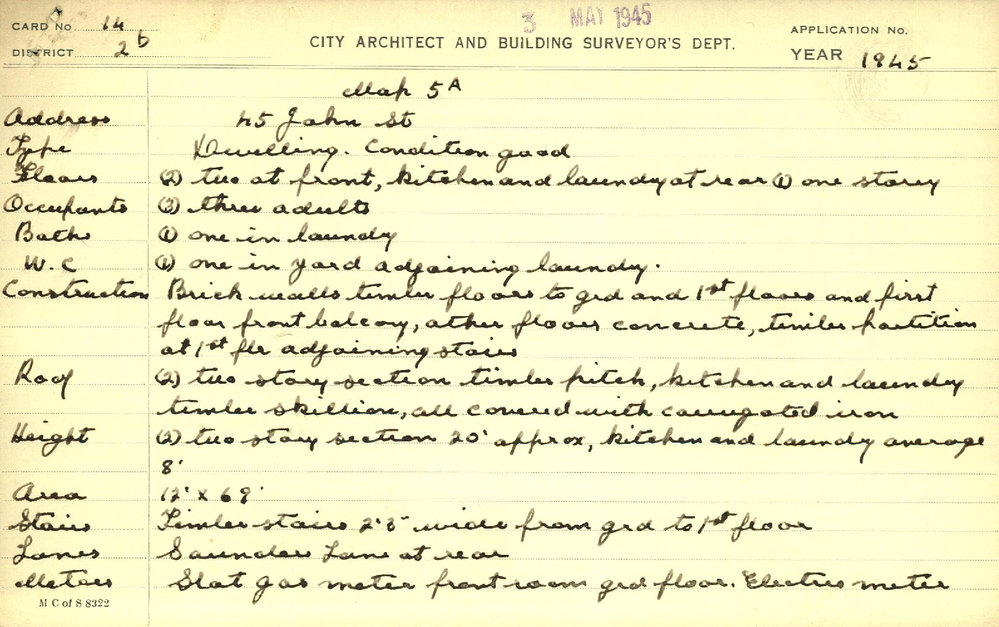 CARD No 14
3 MAY 1945
APPLICATION No.
DISTRICT 2b
CITY ARCHITECT AND BUILDING SURVEYOR'S DEPT.
YEAR 1945
Map 5A
Address 45 John St
Type Dwelling. Condition good
Floors (2) two at front, kitchen and laundry at rear (1) one storey
Occupants (3) three adults
Baths (1) one in laundry
W.C (1) one in yard adjoining laundry.
Construction Brick walls timber floors to grd and 1st floors and first
floor front balcony, other floors concrete, timber partition
at 1st flr adjoining stairs
Roof (2) two story section timber pitch, kitchen and laundry
timber skillion, all covered with corrugated iron
Height (2) two story section 20' approx, kitchen and laundry average
8'
Area 12' x 69'
Stairs Timber stairs 2'3" wide from grd to 1st floor
Lanes Saunders Lane at rear
Meters Slot gas meter front room grd floor. Electric meter
M C of S 8322